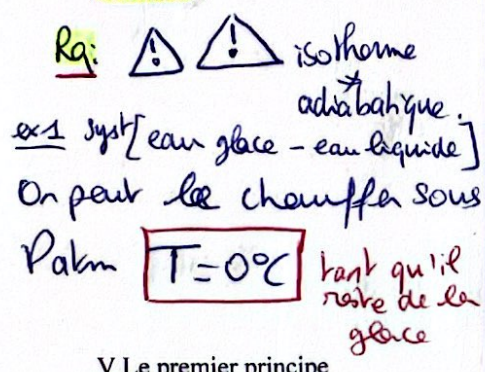 Rq: ⚠ ⚠ isotherme
≠
adiabatique.
ex1 syst[eau glace - eau liquide]
On peut le chauffer sous
Patm T=0°C tant qu'il
reste de la
glace
V Le premier principe